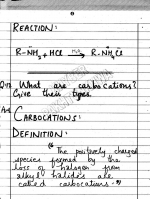 REACTION:
R-NH2 + HCl → R-NH3Cl
Q. What are carbocations?
Give their types.
CARBOCATIONS:
DEFINITION:
"The positively charged
species formed by the
loss of halogen from
alkyl halides are
called carbocations."